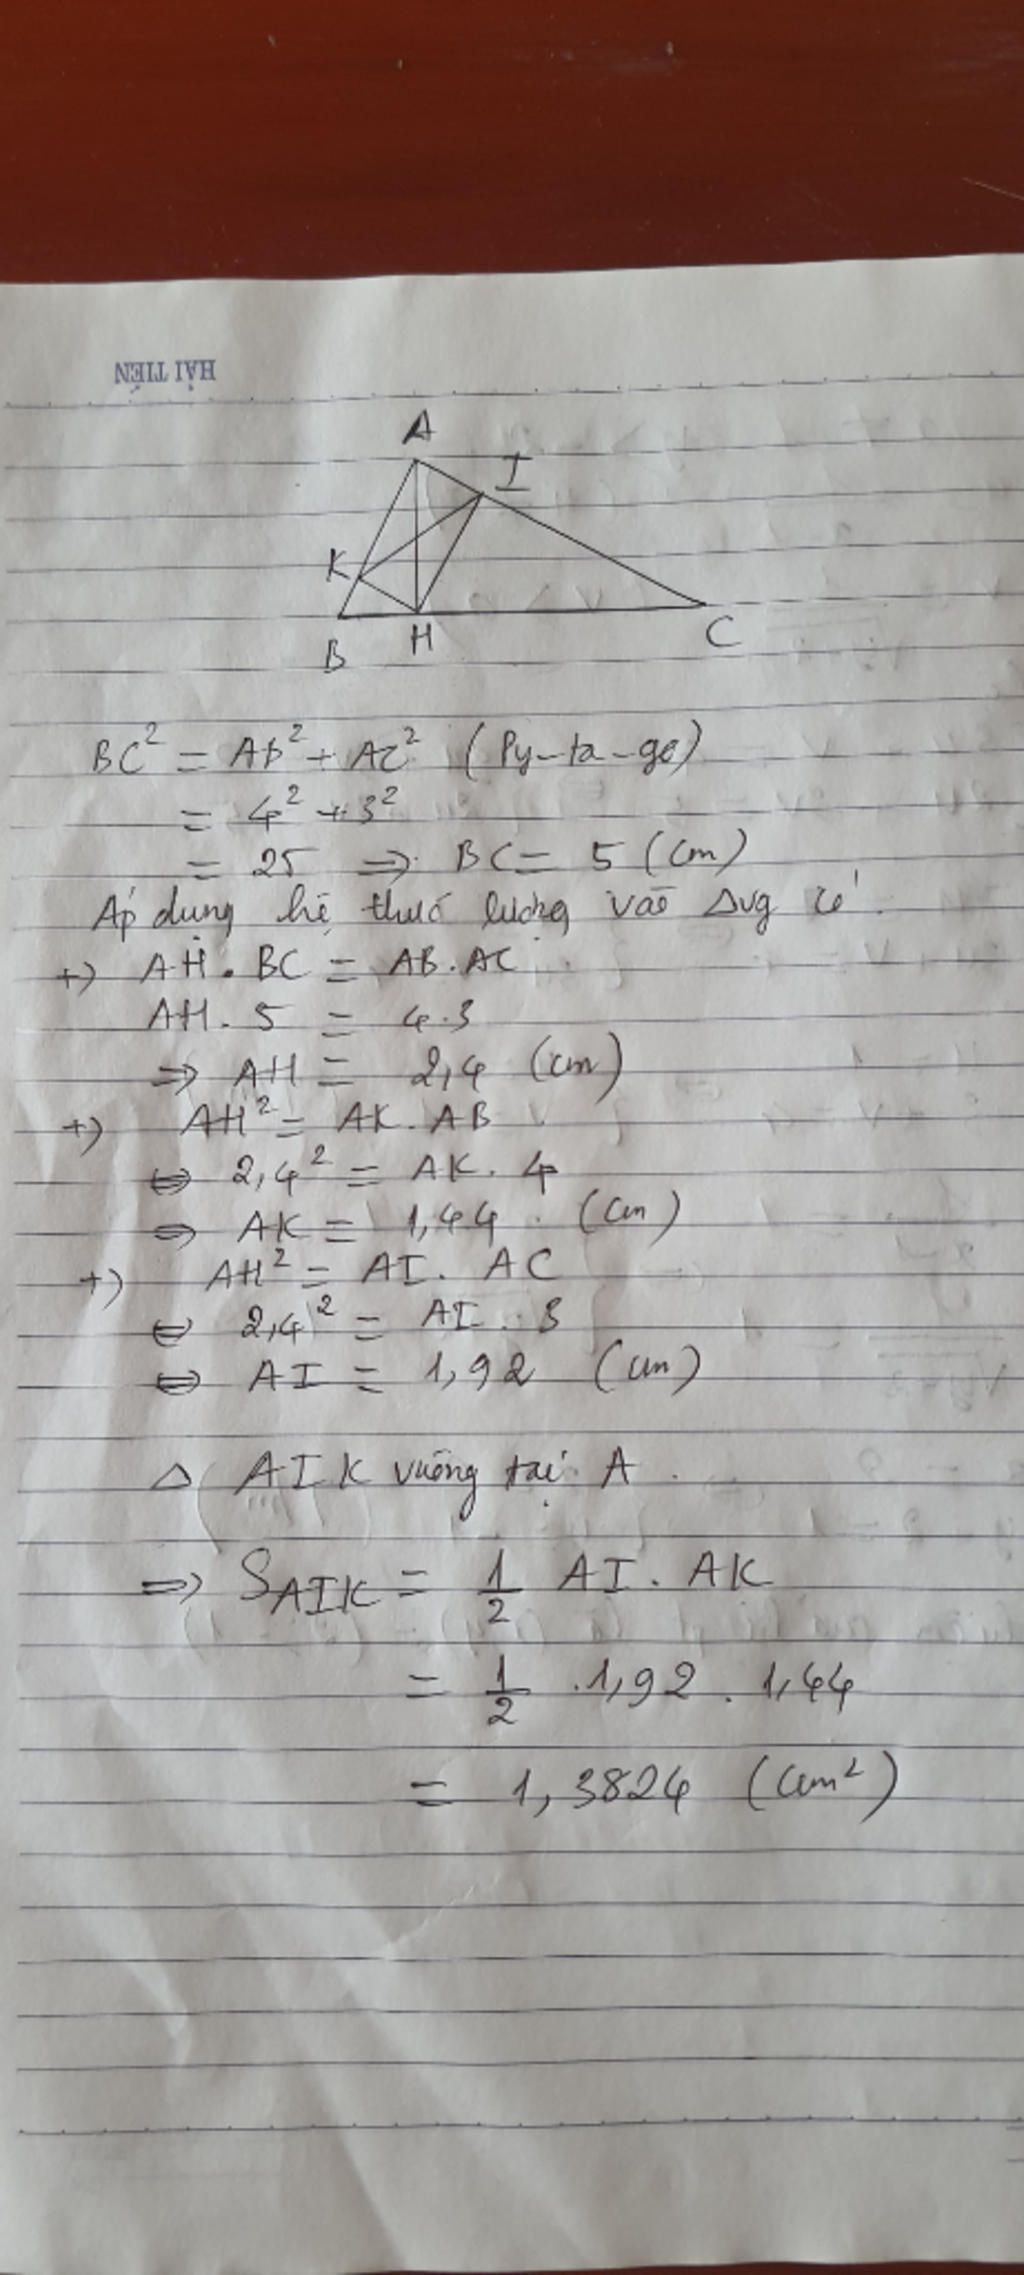 HẢI TIẾN
A
I
K
B H C
BC² = AB² + AC² (Py-ta-go)
= 4² + 3²
= 25 ⇒ BC = 5 (cm)
Áp dụng hệ thức lượng vào Δvg có
+) AH . BC = AB . AC
AH . 5 = 4.3
⇒ AH = 2,4 (cm)
+) AH² = AK . AB
⇔ 2,4² = AK . 4
⇒ AK = 1,44 (cm)
+) AH² = AI . AC
⇔ 2,4² = AI . 3
⇔ AI = 1,92 (cm)
Δ AIK vuông tại A
⇒ S_AIK = 1/2 AI . AK
= 1/2 . 1,92 . 1,44
= 1,3824 (cm²)